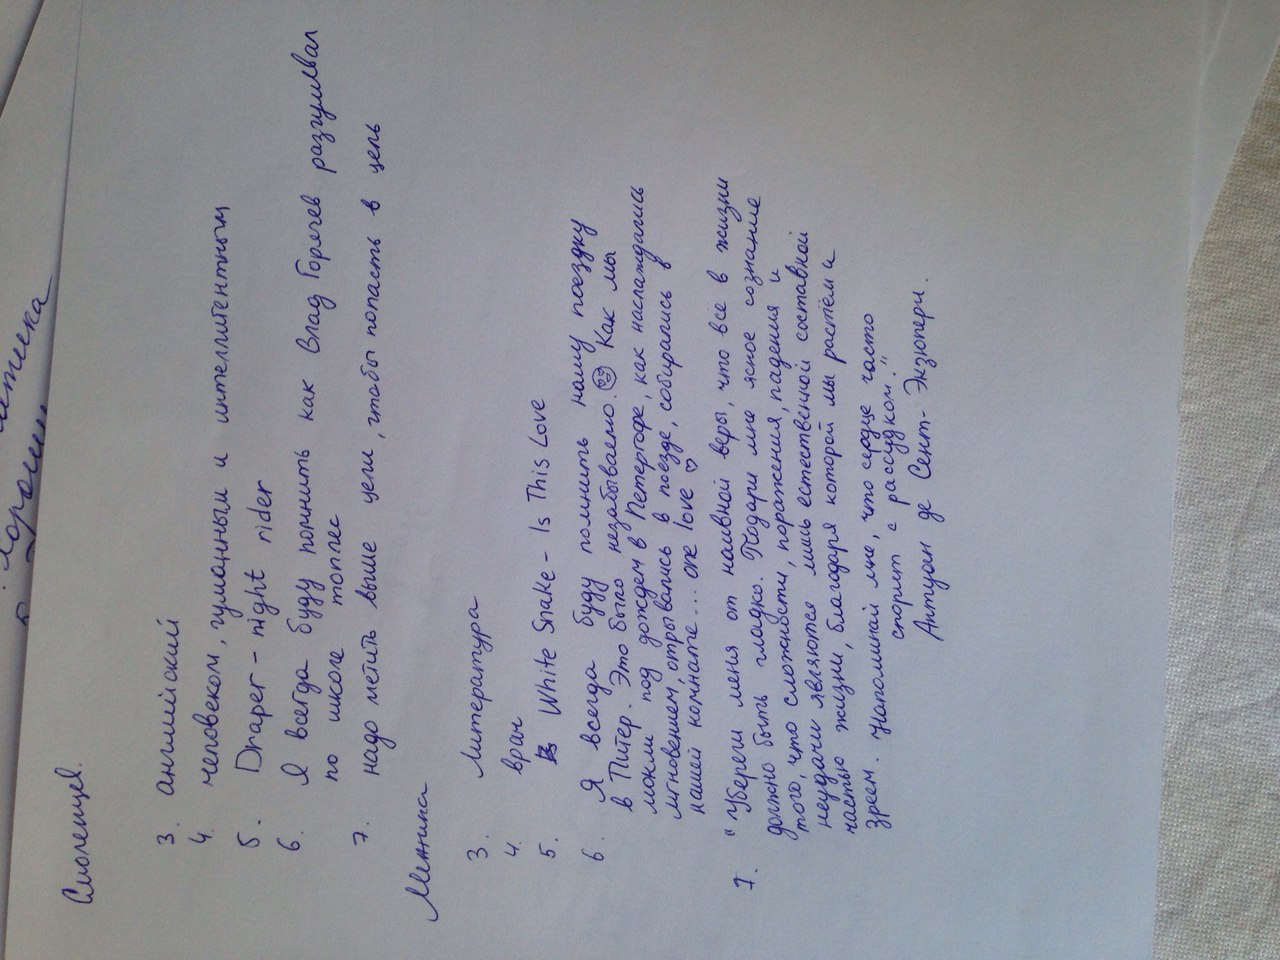 Смоленцев.
3. английский
4. человеком, гуманным и интеллигентным
5. Draper - night rider
6. Я всегда буду помнить как Влад Горячев разгуливал
по школе топлес
7. надо метить выше цели, чтобы попасть в цель
3. литература
4. врач
5. White Snake - Is This Love
6. Я всегда буду помнить нашу поездку
в Питер. Это было незабываемо. Как мы
мокли под дождем в Петергофе, как наслаждались
мгновением, отрывались в поезде, собирались в
нашей комнате... one love ♡
7. "Убереги меня от наивной веры, что все в жизни
должно быть гладко. Подари мне ясное сознание
того, что сложности, поражения, падения и
неудачи являются лишь естественной составной
частью жизни, благодаря которой мы растём и
зреем. Напоминай мне, что сердце часто
спорит с рассудком."
Антуан де Сент-Экзюпери.